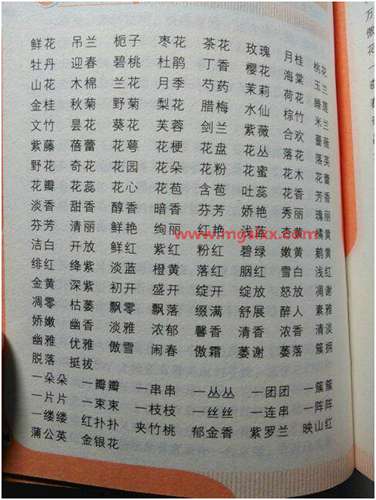 万
鲜花 吊兰 栀子 枣花 茶花 玫瑰 月桂 桃花
牡丹 迎春 碧桃 杜鹃 丁香 樱花 海棠 玉兰
山花 木棉 兰花 月季 芍药 茉莉 荷花 睡莲
金桂 秋菊 野菊 梨花 腊梅 水仙 棕竹 米兰
文竹 昙花 葵花 芙蓉 剑兰 紫薇 合欢 蔷薇
紫藤 蓓蕾 花萼 花梗 花盘 花丛 落花 落英
野花 奇花 花园 花朵 花粉 花蜜 花木 花卉
花瓣 花蕊 花心 花苞 含苞 吐蕊 花香 芳香
淡香 甜香 醇香 暗香 芬芳 娇艳 秀丽 瑰丽
芬芳 清丽 鲜艳 绚丽 红艳 浅蓝 杏黄
www.mgslkx.com
洁白 开放 鲜红 紫红 粉红 碧绿 嫩黄 鹅黄
绯红 绛紫 淡蓝 橙黄 落红 胭红 雪白 浅红
金黄 深紫 初开 盛开 绽开 绽放 怒放 凋谢
凋零 枯萎 飘零 飘落 缀满 舒展 醉人 素雅
娇嫩 幽香 淡雅 浓郁 馨香 清香 浓香 清淡
幽雅 优雅 傲雪 闹春 傲霜 萎谢 萎落 簇拥
脱落 挺拔
一朵朵 一瓣瓣 一串串 一丛丛 一团团 一簇簇
一片片 一束束 一枝枝 一丝丝 一连串 一阵阵
一缕缕 红扑扑 夹竹桃 郁金香 紫罗兰 映山红
蒲公英 金银花